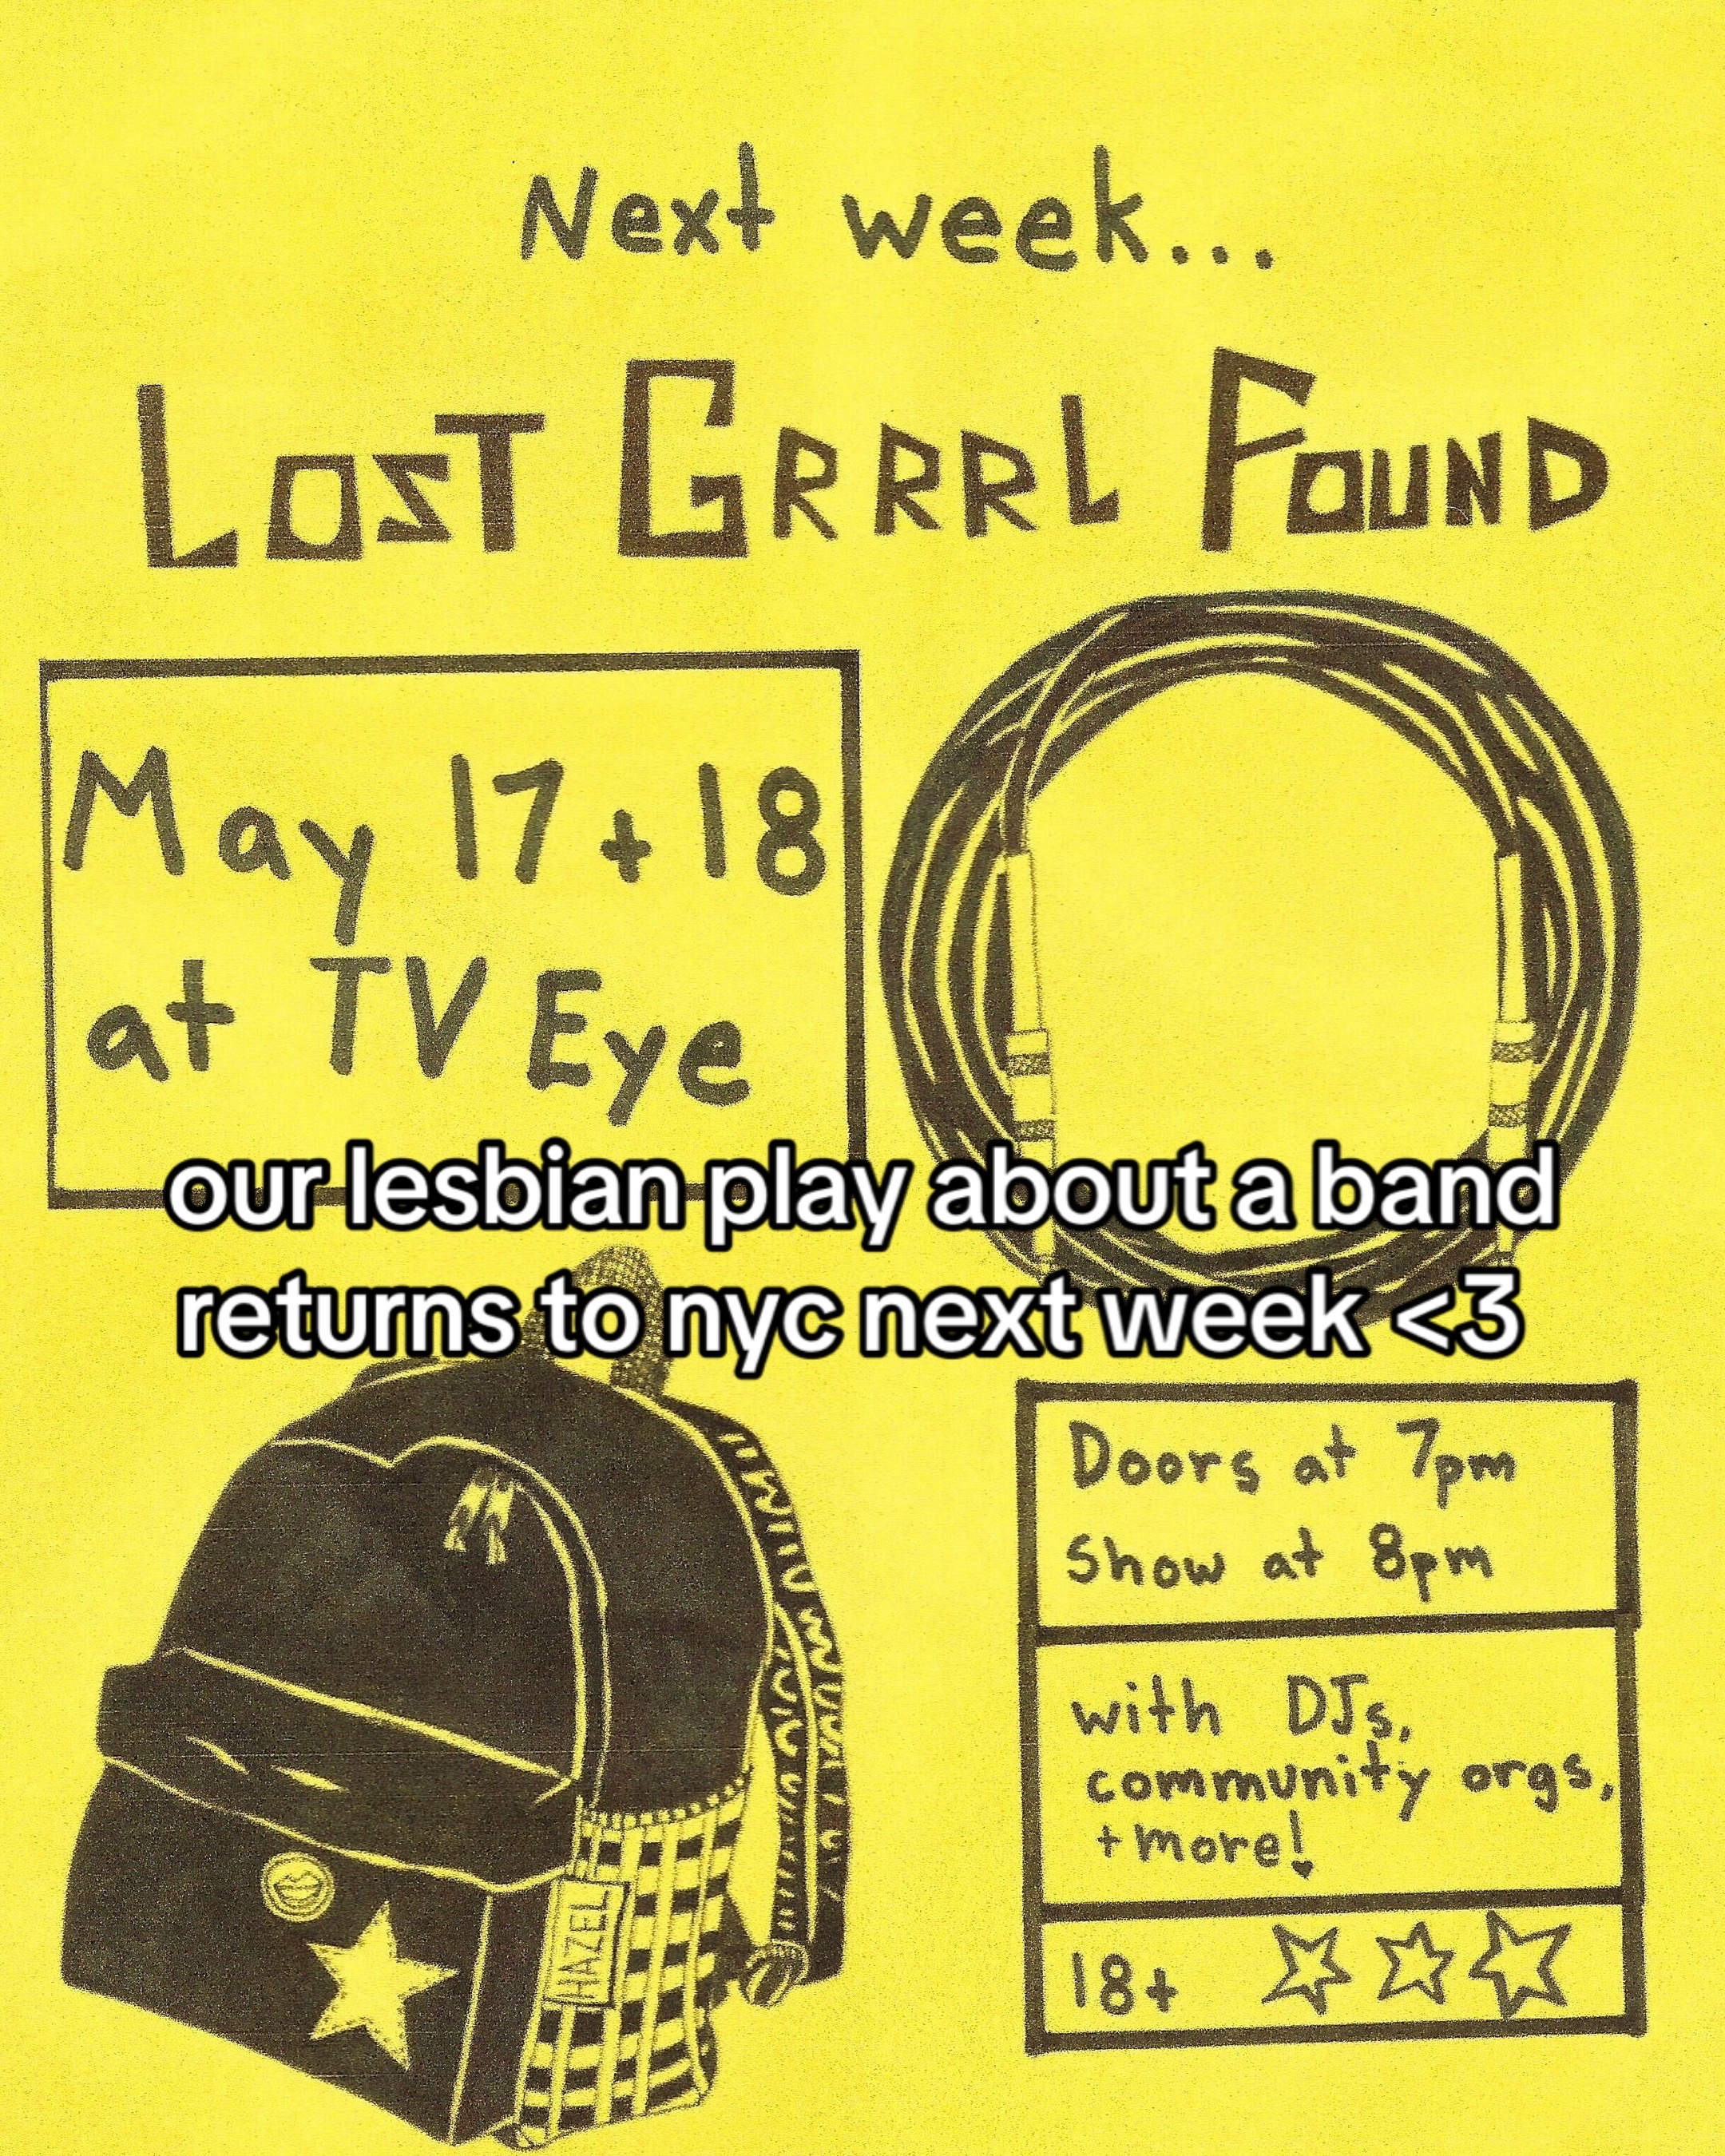 Next week...
LOST GRRRL FOUND
May 17 + 18
at TV Eye
our lesbian play about a band
returns to nyc next week <3
Doors at 7pm
Show at 8pm
with DJs,
community orgs,
+ more!
18+
HAZEL